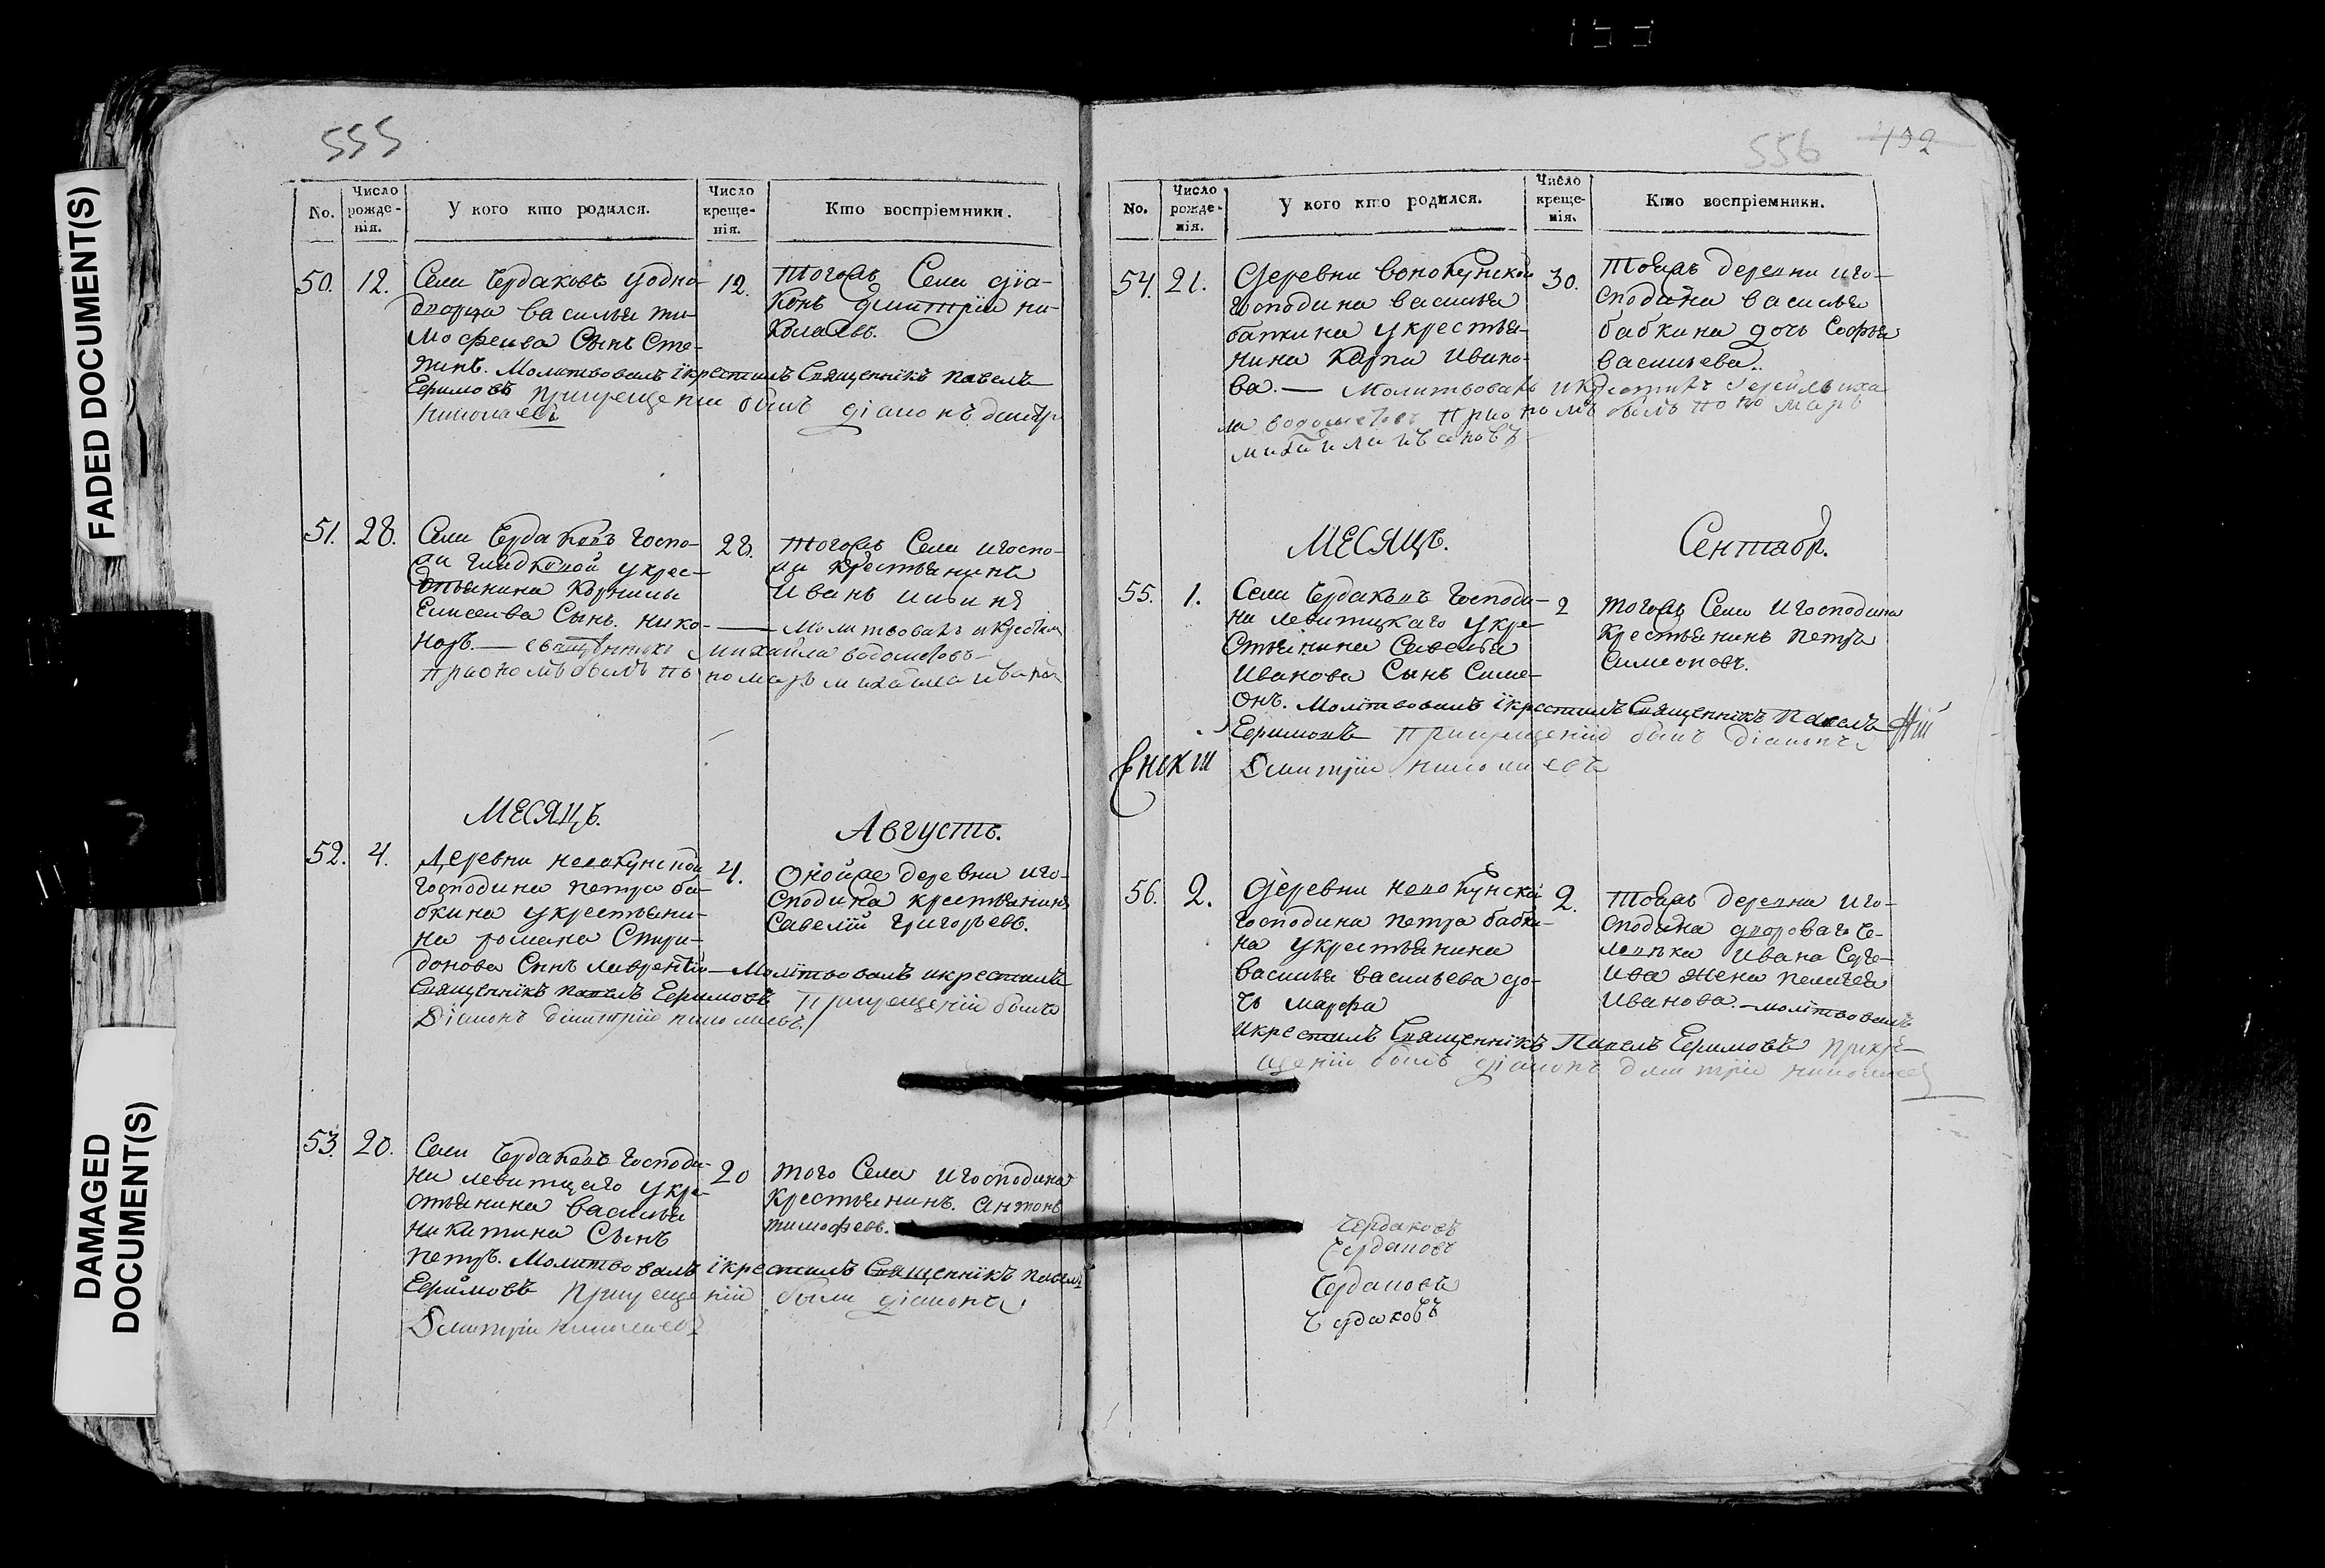 FADED DOCUMENT(S)
DAMAGED
DOCUMENT(S)
555
No.
Число
рожде-
нія.
У кого кто родился.
Число
креще-
нія.
Кто воспріемники.
50. 12.
Села Чердаковъ удно-
дворца василья ти-
мофеива Сынъ Сте-
пинъ. Молитвовалъ ікрестилъ Священнікъ Павелъ
Ефимовъ прикрещеніи былъ діаконъ дмитр
николаевъ
12.
Тогожъ Села діа-
конъ дмитрій ни-
колаевъ.
51. 28.
Села Чердаковъ Госпо-
жи укрес-
тьянина Корнилы
Елисеива Сынъ. Нико-
норъ. — священникъ михаила водолеювъ
28.
Тогожъ Села игоспо-
жи крестьянинъ
Иванъ Ильинъ
— молитвовалъ икрестилъ
МЕСЯЦЪ.
Августъ.
52. 4.
Деревни
Господина петра ба-
бкина укрестьяни-
на романа Спири-
донова Сынъ лаврентій — Молітвовалъ икрестилъ
Священнікъ павелъ Ефимовъ прикрещеніи былъ
Діаконъ дмитріи николаевъ
4.
Онойже деревни иго-
сподина крестьянинъ
Савелій Григорьевъ.
53. 20.
Села Чердаковъ Господи-
на левитцкаго укре-
стьянина василья
никитина Сынъ
петръ. Молитвовалъ ікрестилъ Священнікъ Павелъ
Ефимовъ прикрещеніи были діаконъ
Дмитріи николаевъ
20
того Села игосподина
Крестьянинъ. Антонъ
тимофеевъ.
556 432
No.
Число
рожде-
нія.
У кого кто родился.
Число
креще-
нія.
Кто воспріемники.
54. 21.
Деревни
Господина василья
бапкина укрестья-
нина Карпа Ивано-
ва. — Молитвовалъ икрестилъ
михаила ивановъ
30.
Тояжъ деревни иго-
сподина василья
бабкина дочь Софья
васильева.
МЕСЯЦЪ.
Сентябр.
55. 1.
Села Чердаковъ Господи-
на левитцкаго укре-
стьянина Савелья
Иванова Сынъ Симе-
онъ. Молітвовалъ ікрестилъ Священнікъ Павелъ
Ефимовъ прикрещеніи былъ діаконъ
Дмитріи николаевъ
2
тогожъ Села игосподина
Крестьянинъ петръ
Симеоновъ.
56. 2.
Деревни
Господина петра бабки-
на укрестьянина
василья васильева до-
чь марфа
икрестилъ Священнікъ Павелъ Ефимовъ прикре-
щеніи былъ діаконъ дмитріи николаевъ
2.
Тояжъ деревни иго-
сподина дворовагоче-
ловека Ивана Серге-
ива жена пелагея
Иванова. — молітвовалъ
Чердаковъ
Чердаковъ
Чердаковъ
Чердаковъ